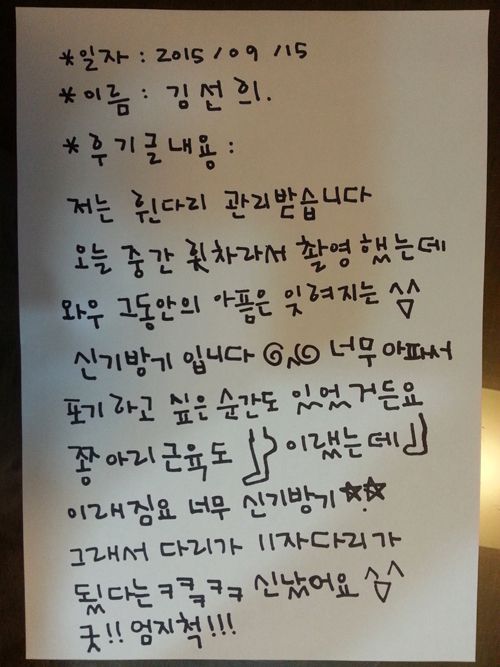 *일자 : 2015/09/15
*이름 : 김선희.
*후기글내용 :
저는 휜다리 관리받습니다
오늘 중간 횟차라서 촬영했는데
와우 그동안의 아픔은 잊혀지는 ^^
신기방기 입니다 너무아파서
포기하고 싶은순간도 있었거든요
종아리근육도 이랬는데
이래짐요 너무 신기방기☆☆
그래서 다리가 11자다리가
됬다는ㅋㅋㅋㅋ 신났어요 ^^
굿!! 엄지척!!!